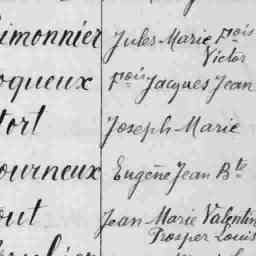 imonnier Jules Marie Fois
Victor
oqueux Fois Jacques Jean
fort Joseph Marie
ourneux Eugène Jean Bte
out Jean Marie Valentin
Prosper Louis